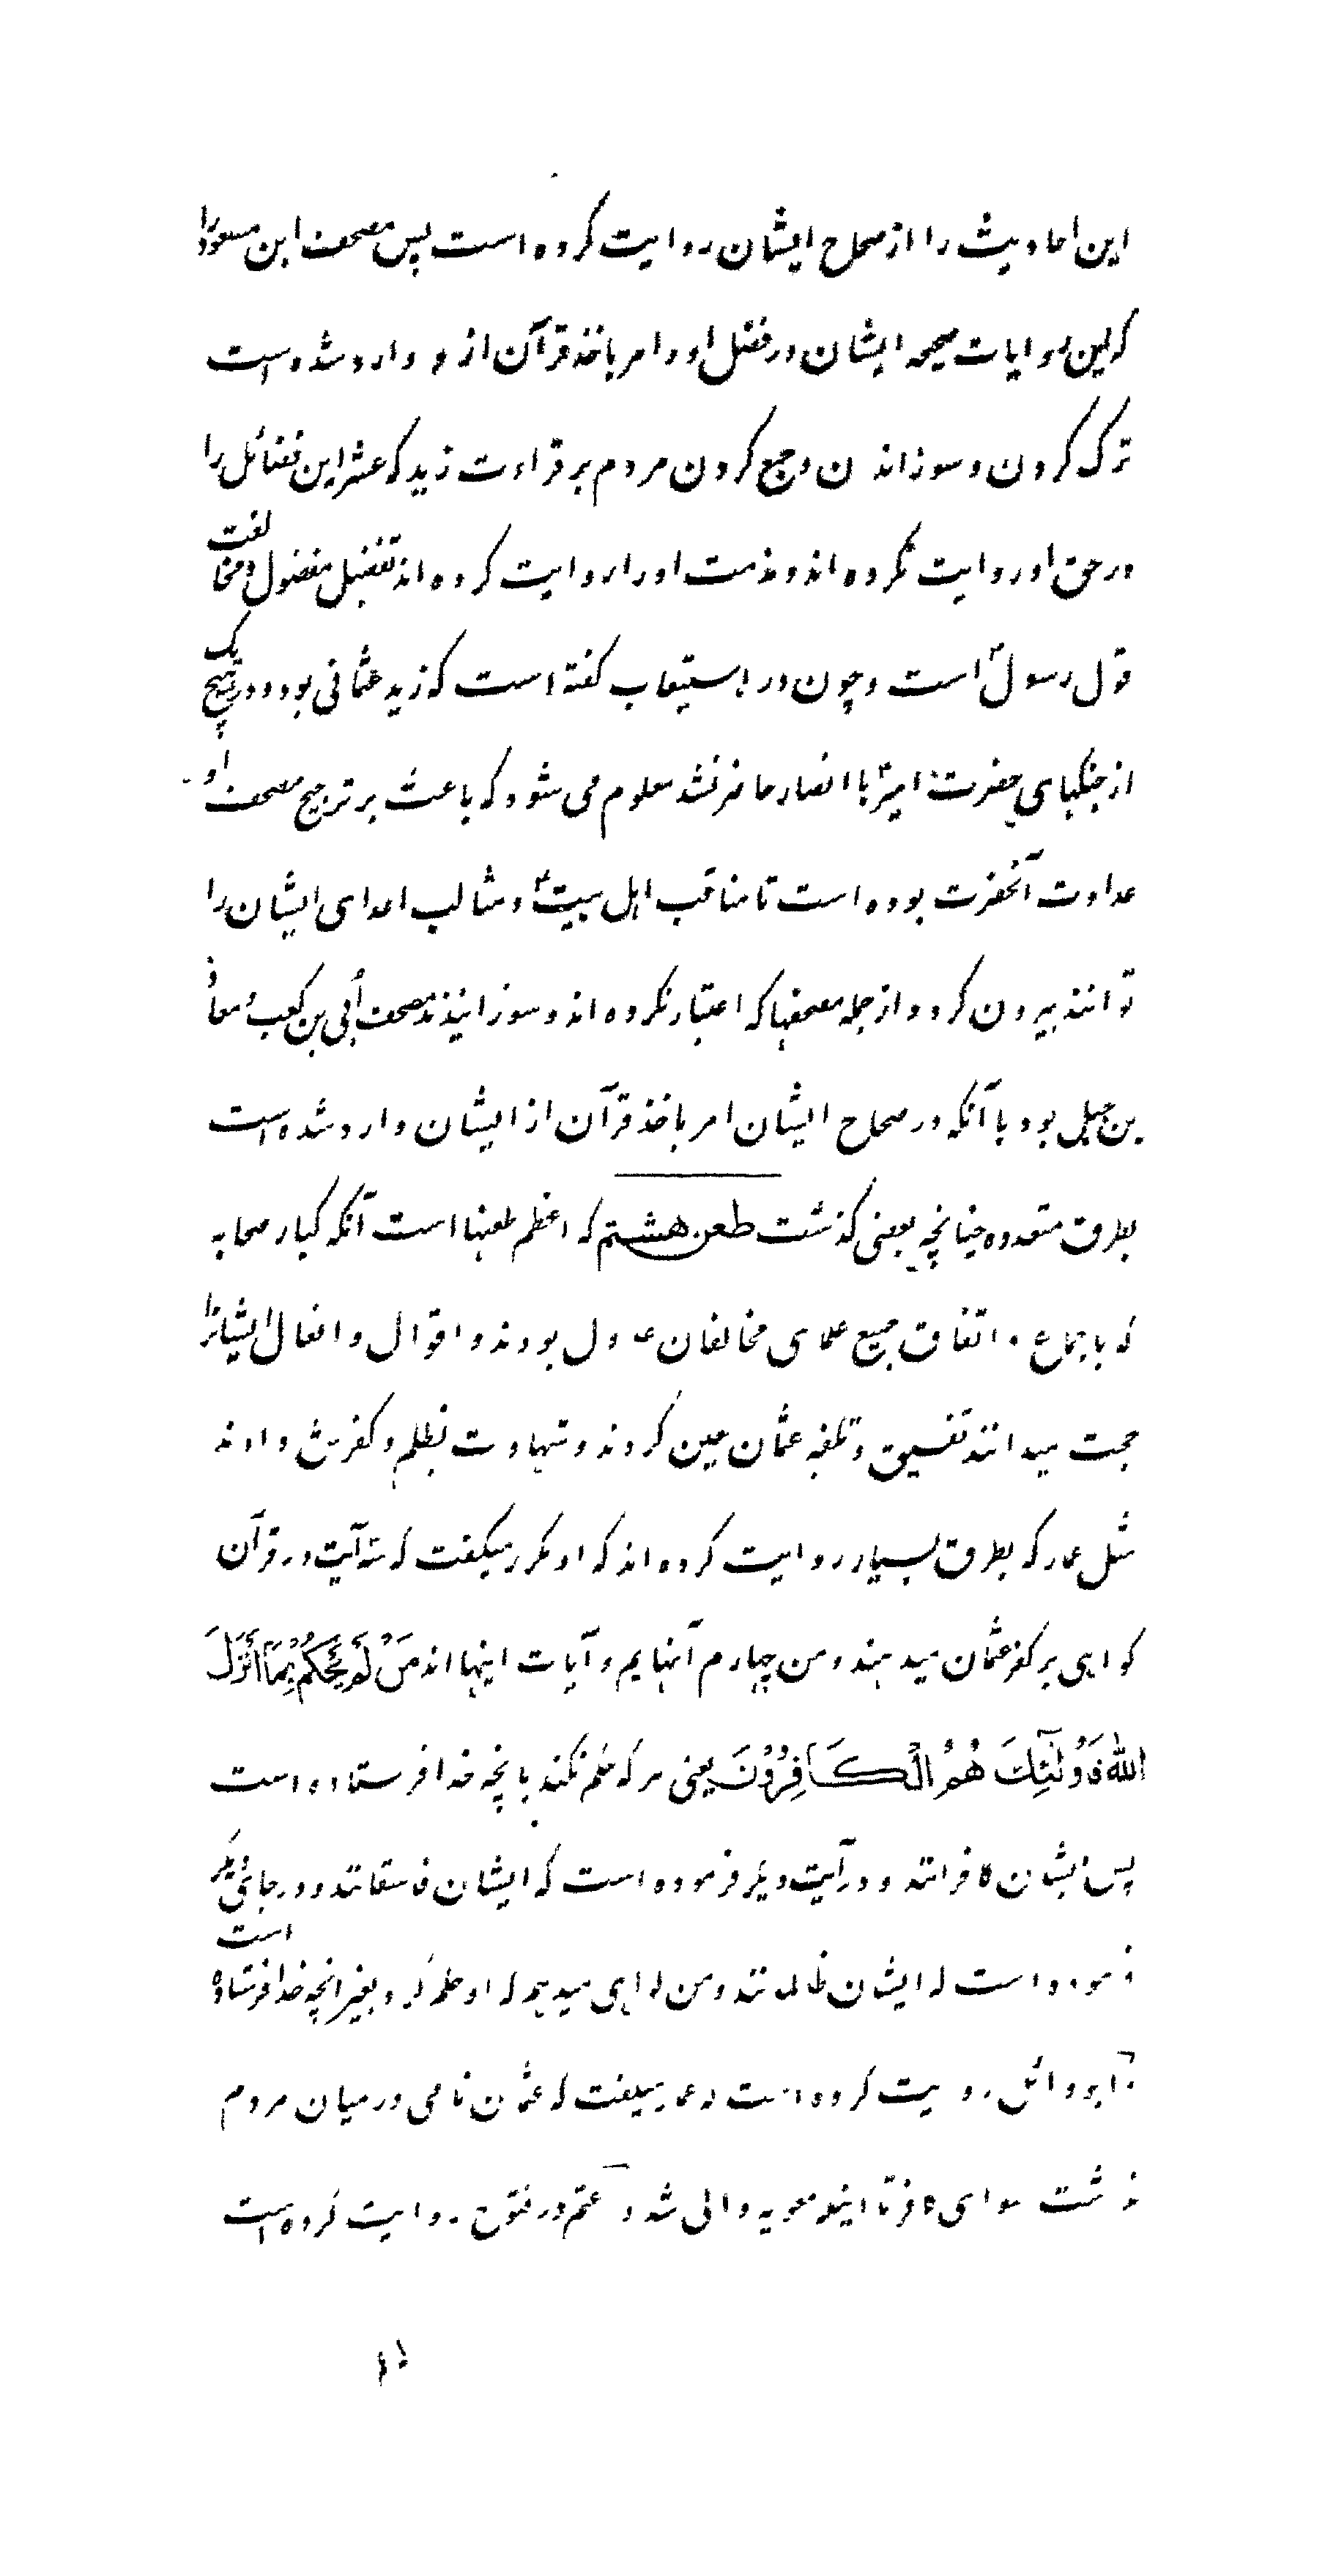 این احادیث را از صحاح ایشان روایت کرده است پس مصحف ابن مسعود را
که این روایات صحیحه ایشان در فضل او و امر باخذ قرآن از و وارد شده است
ترک کردن و سوزاندن و جمع کردن مردم بر قراءت زید که عشر این فضائل را
در حق او روایت نکرده اند و مذمت او را روایت کرده اند تفضیل مفضول و مخالفت
قول رسول است و چون در استیعاب گفته است که زید عثمانی بود و در هیچ یک
از جنگهای حضرت امیر با انصار حاضر نشد معلوم می شود که باعث بر ترجیح مصحف او
عداوت آنحضرت بوده است تا مناقب اهل بیت و مثالب اعدای ایشان را
توانند بیرون کرد و از جمله مصحفها که اعتبار نکرده اند و سوزانیدند مصحف أبی بن کعب و معاذ
بن جبل بود با آنکه در صحاح ایشان امر باخذ قرآن از ایشان وارد شده است
بطرق متعدده چنانچه بعضی گذشت طعن هشتم که اعظم طعنها است آنکه کبار صحابه
که باجماع و اتفاق جمیع علمای مخالفان عدول بودند و اقوال و افعال ایشانرا
حجت میدانند تفسیق و تکفیر عثمان لعین کردند و شهادت بظلم و کفرش دادند
مثل عمار که بطرق بسیار روایت کرده اند که او مکرر میگفت که سه آیت در قرآن
گواهی بر کفر عثمان میدهند و من چهارم آنهایم و آیات اینها اند مَنْ لَمْ يَحْكُمْ بِمَا أَنْزَلَ
اللهُ فَأُولَٰئِكَ هُمُ الْكَافِرُونَ یعنی هر که حکم نکند بانچه خدا فرستاده است
پس ایشان کافرانند و در آیت دیگر فرموده است که ایشان فاسقانند و در جائی دیگر
فرموده است که ایشان ظالمانند و من گواهی میدهم که او حکم کرد بغیر انچه خدا فرستاده است
و ابو وائل روایت کرده است که عمار میگفت که عثمان نامی در میان مردم
نداشت سوای کافر تا اینکه معویه والی شد و اعثم در فتوح روایت کرده است